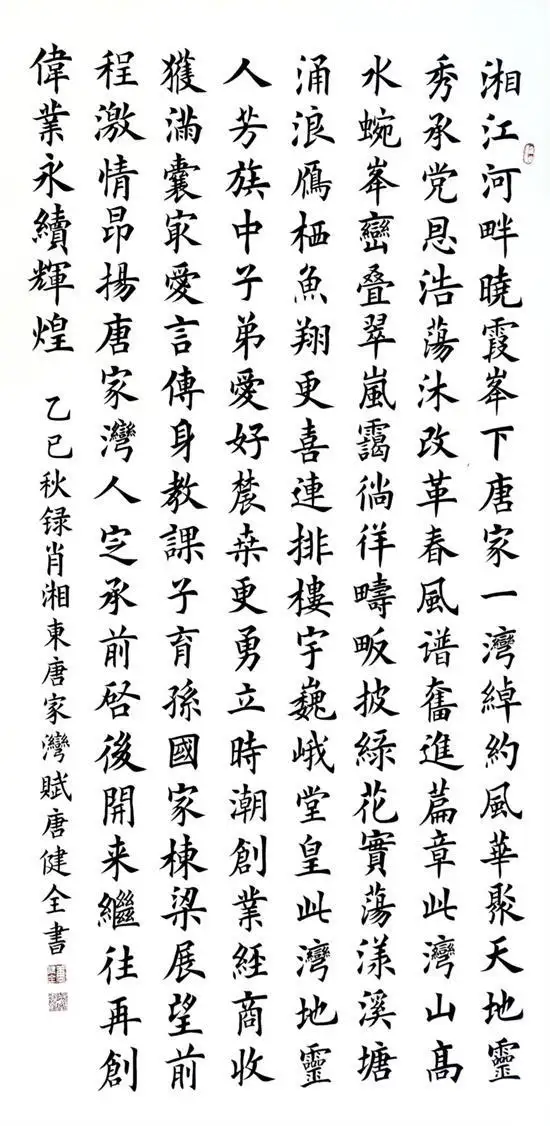 湘江河畔曉霞峯下唐家一灣綽約風華聚天地靈
秀承党恩浩蕩沐改革春風谱奮進篇章此灣山高
水蜿峯巒叠翠嵐靄徜徉疇畈披綠花實蕩漾溪塘
涌浪鴈栖魚翔更喜連排樓宇巍峨堂皇此灣地靈
人芳族中子弟愛好農桒更勇立時潮創業経商收
獲滿囊冣愛言傳身教課子育孫國家棟梁展望前
程激情昂揚唐家灣人定承前啓後開来繼往再創
偉業永續輝煌
乙巳秋録肖湘東唐家灣賦唐健全書